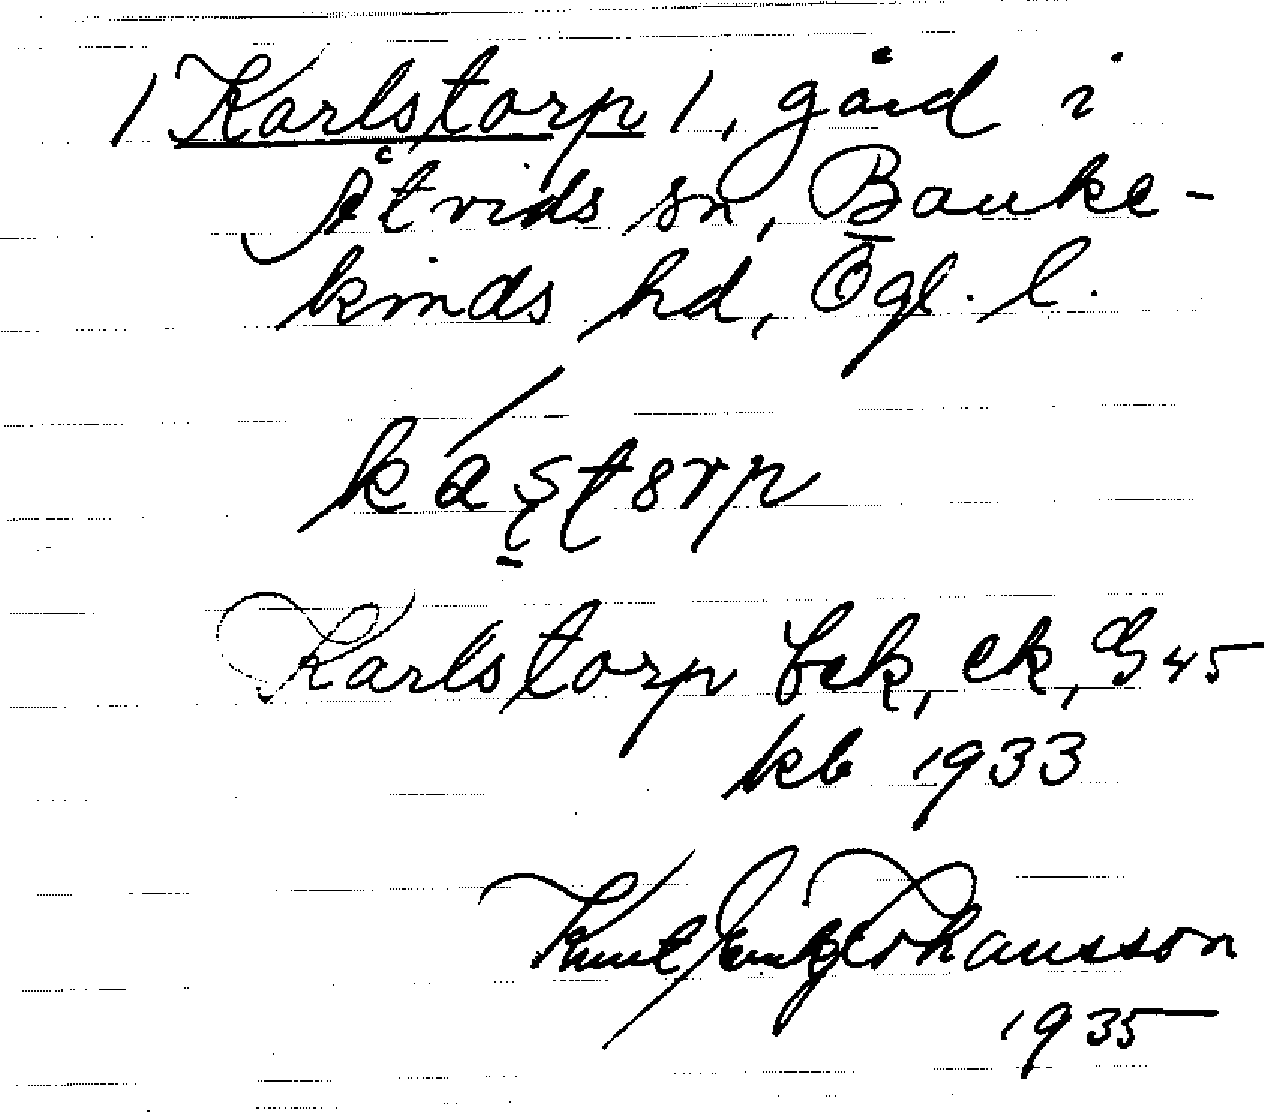 / Karlstorp /, gård i
Åtvids sn, Banke-
kinds hd, Ögl. l.
kástorp
Karlstorp bek, ek, G 45
kb 1933
Knut Johansson
1935